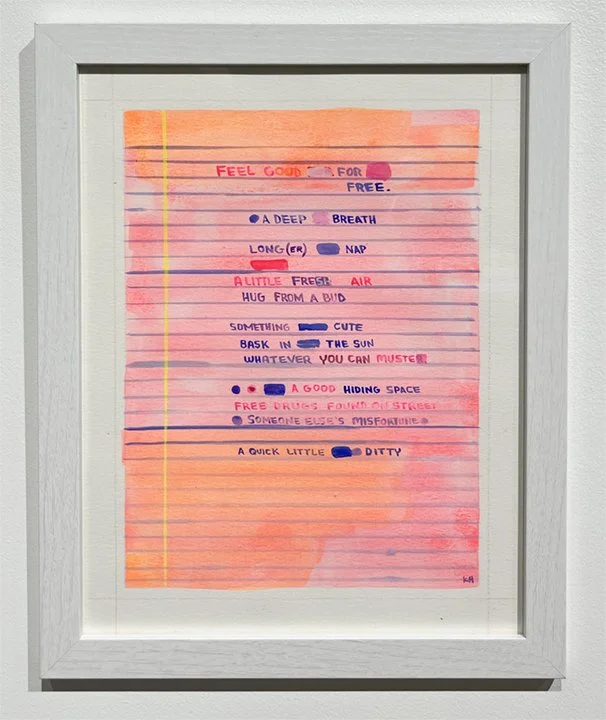 FEEL GOOD FOR
FREE.
A DEEP BREATH
LONG(ER) NAP
A LITTLE FRESH AIR
HUG FROM A BUD
SOMETHING CUTE
BASK IN THE SUN
WHATEVER YOU CAN MUSTER
A GOOD HIDING SPACE
FREE DRUGS FOUND ON STREET
SOMEONE ELSE'S MISFORTUNE
A QUICK LITTLE DITTY
KA